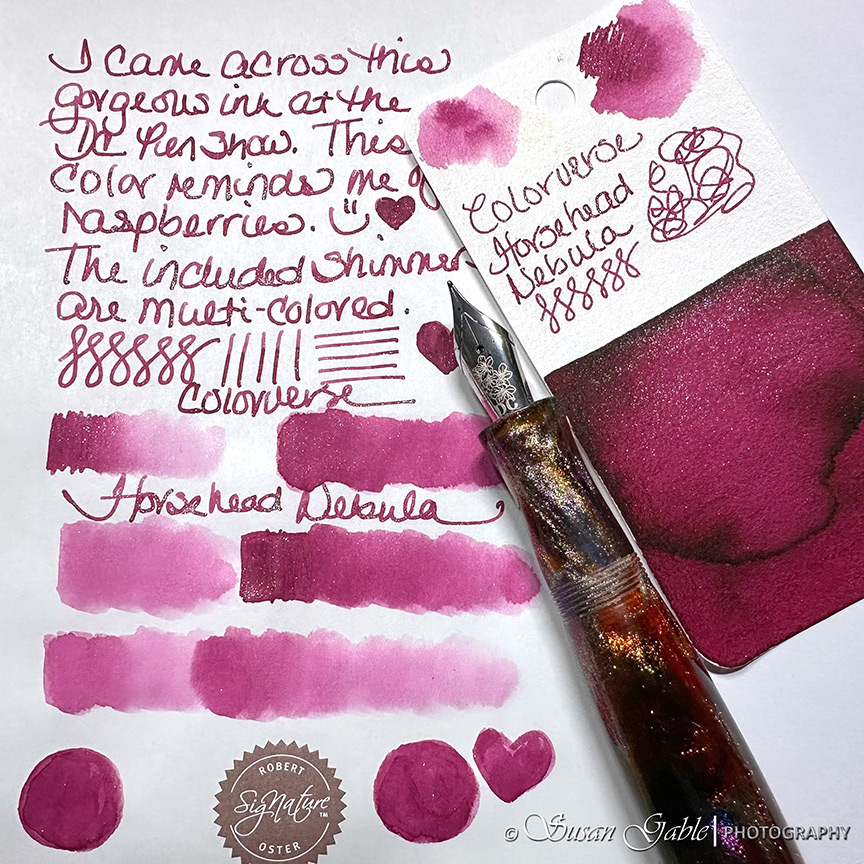 I came across this
gorgeous ink at the
DC Pen Show. This
color reminds me of
Raspberries.
The included shimmer
are multi-colored.
Colorverse
Horsehead Nebula
Colorverse
Horsehead
Nebula
ROBERT
Signature™
OSTER
© Susan Gable | PHOTOGRAPHY